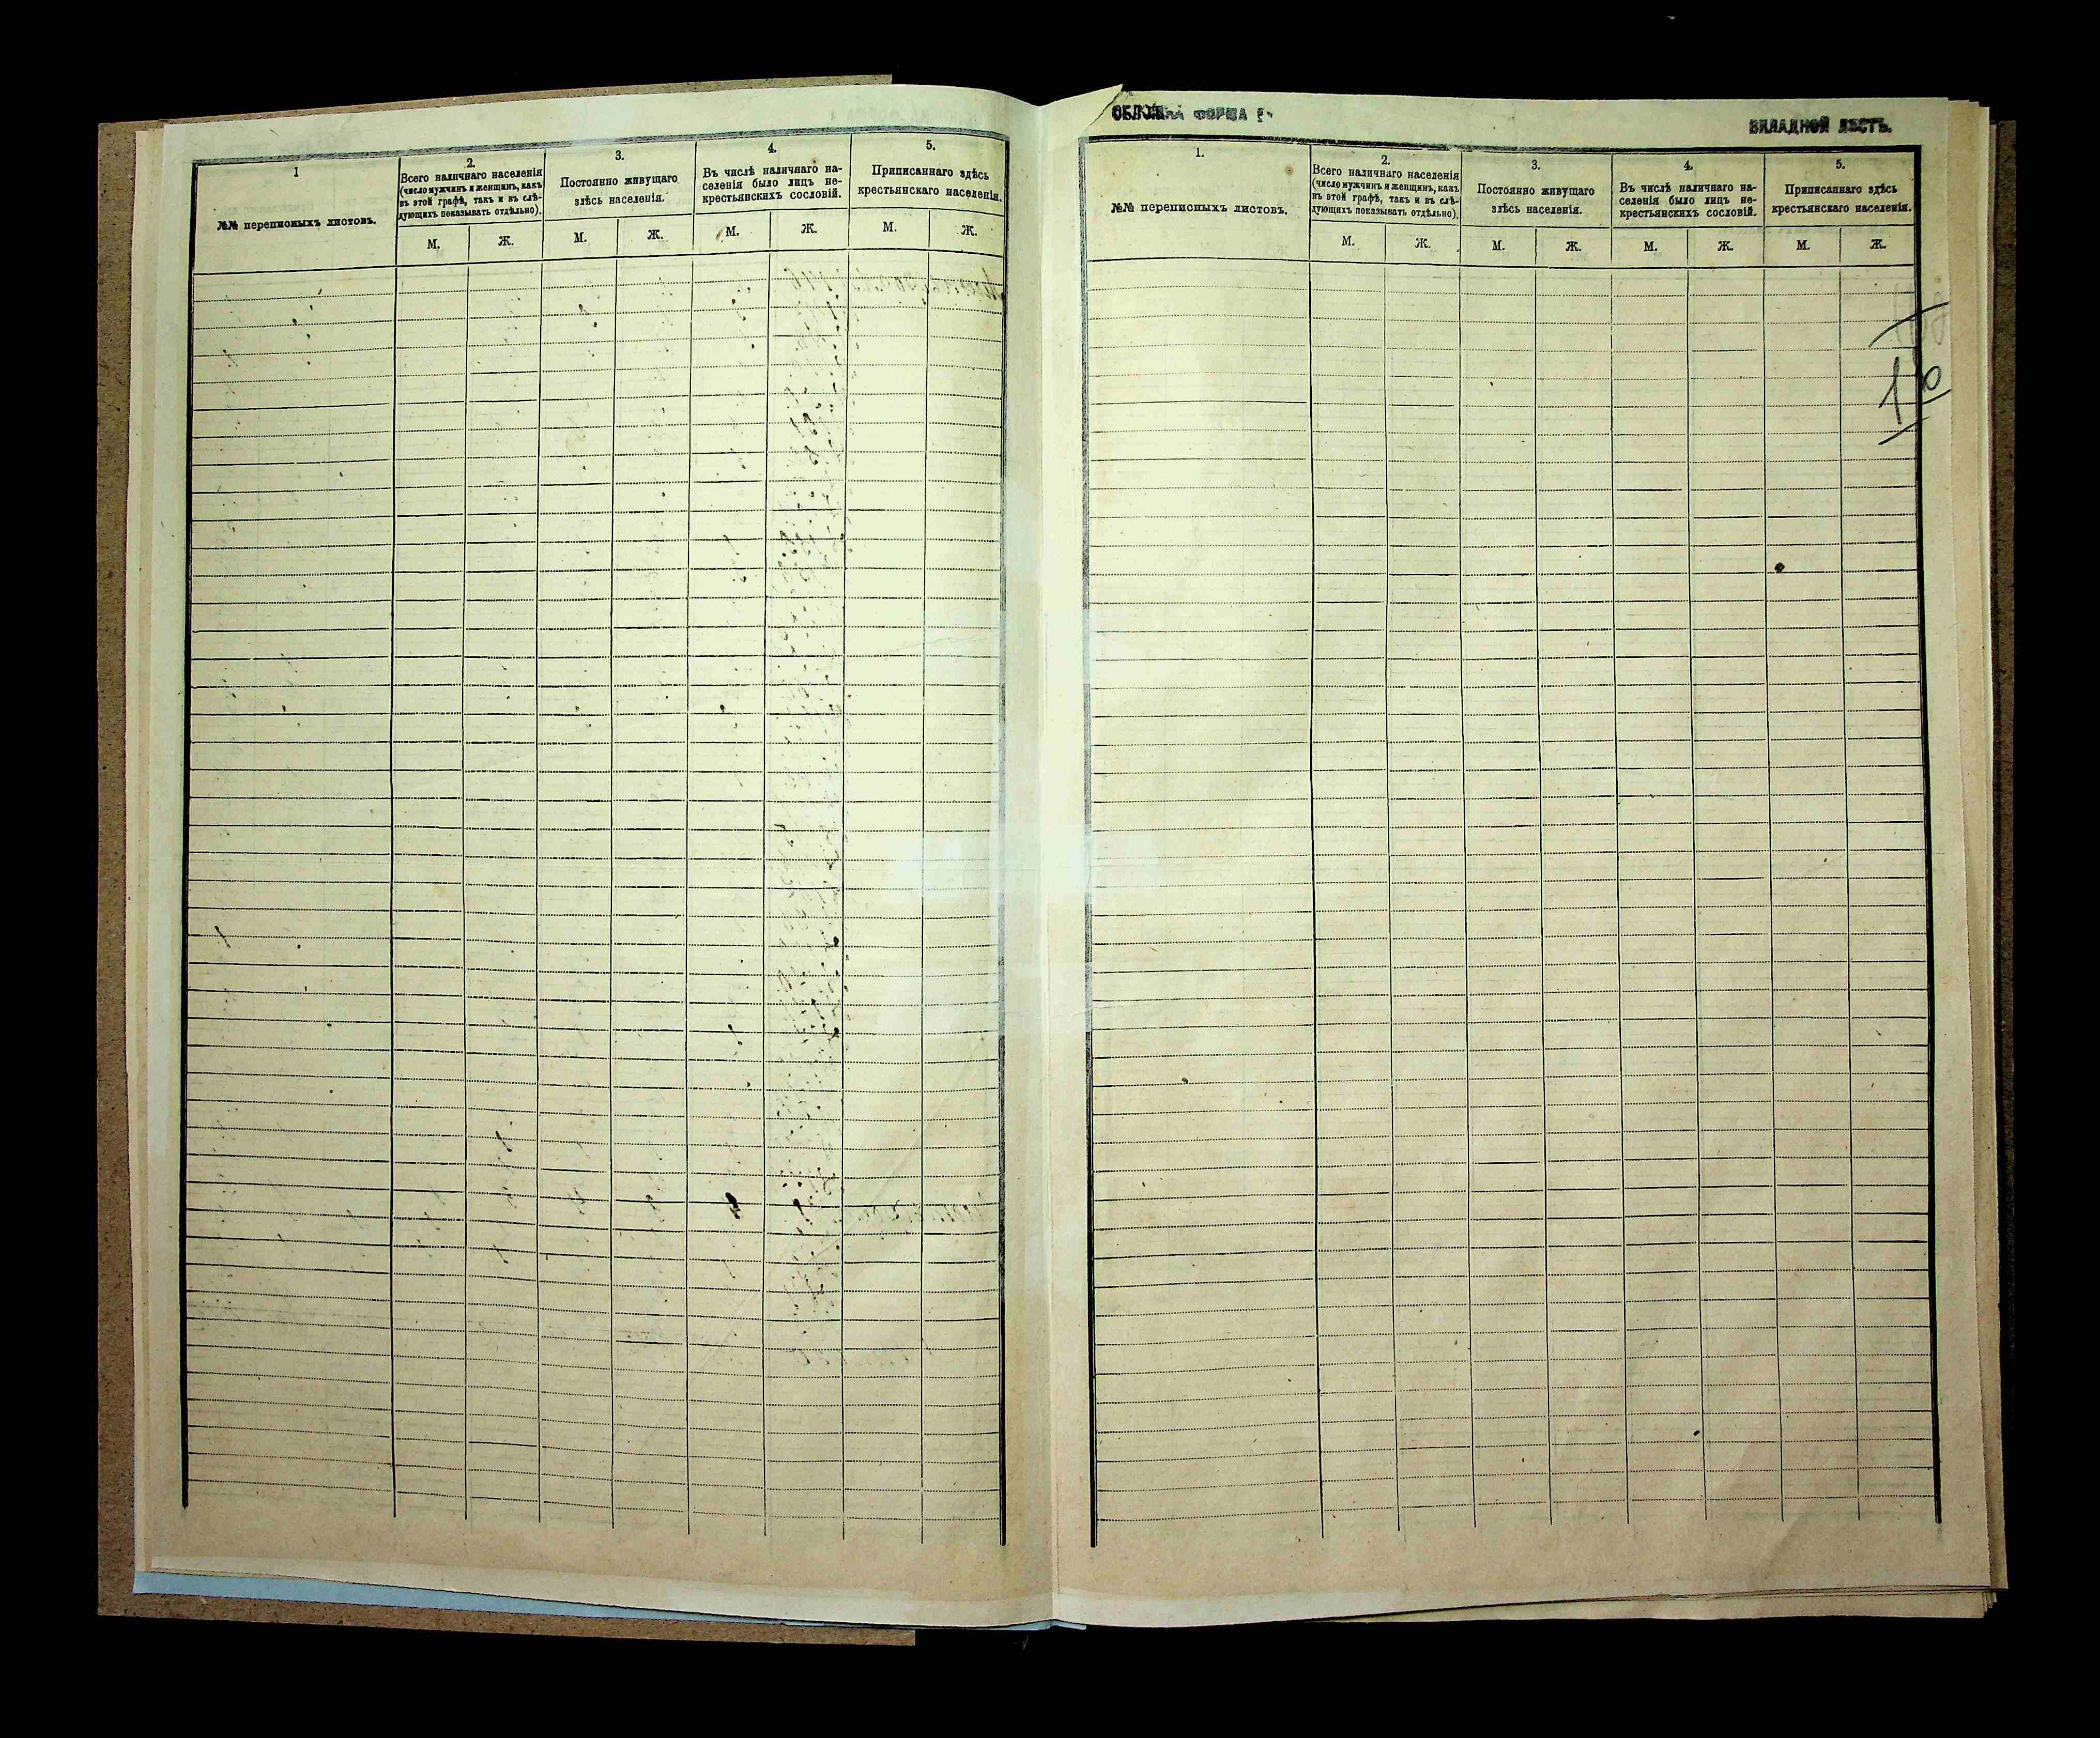 1
№№ переписныхъ листовъ.
2.
Всего наличнаго населенія
(число мужчинъ и женщинъ, какъ
въ этой графѣ, такъ и въ слѣ-
дующихъ показывать отдѣльно).
М. Ж.
3.
Постоянно живущаго
здѣсь населенія.
М. Ж.
4.
Въ числѣ наличнаго на-
селенія было лицъ не-
крестьянскихъ сословій.
М. Ж.
5.
Приписаннаго здѣсь
крестьянскаго населенія.
М. Ж.
ФОРМА
ВКЛАДНОЙ ЛИСТЪ.
1.
№№ переписныхъ листовъ.
2.
Всего наличнаго населенія
(число мужчинъ и женщинъ, какъ
въ этой графѣ, такъ и въ слѣ-
дующихъ показывать отдѣльно).
М. Ж.
3.
Постоянно живущаго
здѣсь населенія.
М. Ж.
4.
Въ числѣ наличнаго на-
селенія было лицъ не-
крестьянскихъ сословій.
М. Ж.
5.
Приписаннаго здѣсь
крестьянскаго населенія.
М. Ж.
10